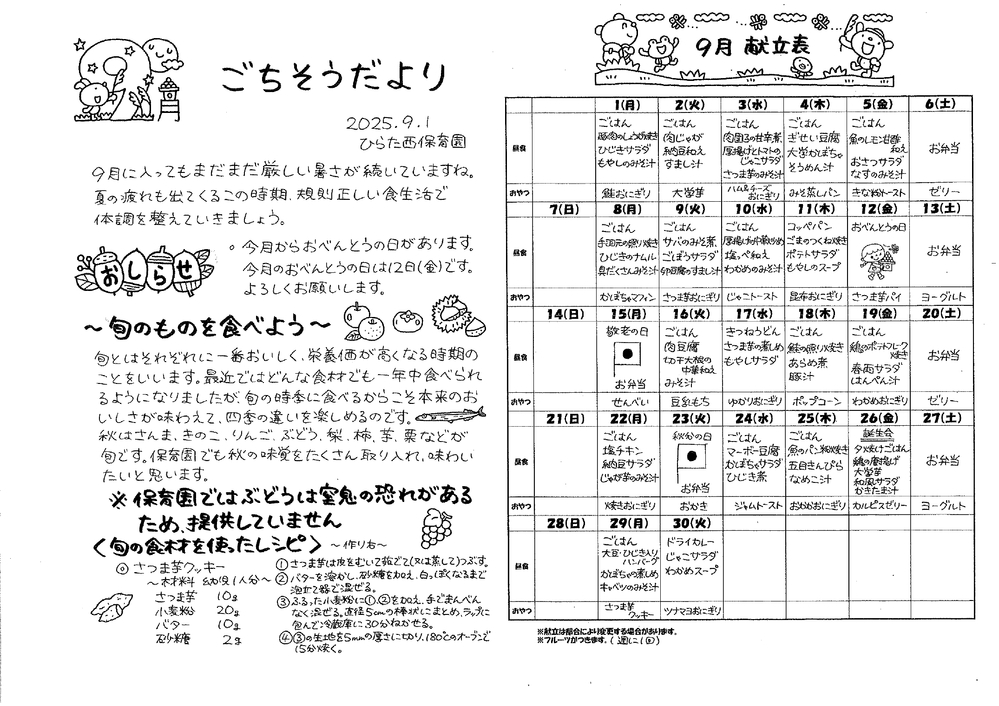 ごちそうだより
2025.9.1
ひらた西保育園
9月に入ってもまだまだ厳しい暑さが続いていますね。
夏の疲れも出てくるこの時期、規則正しい食生活で
体調を整えていきましょう。
おしらせ
。今月からおべんとうの日があります。
今月のおべんとうの日は12日(金)です。
よろしくお願いします。
～旬のものを食べよう～
旬とはそれぞれに一番おいしく、栄養価が高くなる時期の
ことをいいます。最近ではどんな食材でも一年中食べられ
るようになりましたが、旬の時季に食べるからこそ本来のお
いしさが味わえて、四季の違いを楽しめるのです。
秋はさんま、きのこ、りんご、ぶどう、梨、柿、芋、栗などが
旬です。保育園でも秋の味覚をたくさん取り入れ、味わい
たいと思います。
※保育園ではぶどうは窒息の恐れがある
ため、提供していません
〈旬の食材を使ったレシピ〉 ～作り方～
◎さつま芋クッキー
～材料 幼児1人分～
さつま芋 10g
小麦粉 20g
バター 10g
砂糖 2g
①さつま芋は皮をむいて茹でて(又は蒸して)つぶす。
②バターを溶かし、砂糖を加え、白っぽくなるまで
泡立て器で混ぜる。
③ふるった小麦粉に①、②を加え、手でまんべん
なく混ぜる。直径5cmの棒状にまとめ、ラップに
包んで冷蔵庫に30分ねかせる。
④③の生地を5mmの厚さに切り、180℃のオーブンで
15分焼く。
9月 献立表
1(月) 2(火) 3(水) 4(木) 5(金) 6(土)
昼食
ごはん
豚肉のしょうが焼き
ひじきサラダ
もやしのみそ汁
ごはん
肉じゃが
納豆和え
すまし汁
ごはん
肉団子の甘辛煮
厚揚げとトマトの
じゃこサラダ
さつま芋のみそ汁
ごはん
ぎせい豆腐
大学かぼちゃ
そうめん汁
ごはん
魚のレモン甘酢
和え
おさつサラダ
なすのみそ汁
お弁当
おやつ
鮭おにぎり
大学芋
ハム&チーズ
おにぎり
みそ蒸しパン
きな粉トースト
ゼリー
7(日) 8(月) 9(火) 10(水) 11(木) 12(金) 13(土)
昼食
ごはん
手羽元の照り焼き
ひじきのナムル
具だくさんみそ汁
ごはん
サバのみそ煮
ごぼうサラダ
卵豆腐のすまし汁
ごはん
厚揚げの中華炒め
塩っぺ和え
わかめのみそ汁
コッペパン
ごまのつくね焼き
ポテトサラダ
もやしのスープ
おべんとうの日
お弁当
おやつ
かぼちゃマフィン
さつま芋おにぎり
じゃこトースト
昆布おにぎり
さつま芋パイ
ヨーグルト
14(日) 15(月) 16(火) 17(水) 18(木) 19(金) 20(土)
昼食
敬老の日
お弁当
ごはん
肉豆腐
切干大根の
中華和え
みそ汁
きつねうどん
さつま芋の煮しめ
もやしサラダ
ごはん
鮭の照り焼き
あらめ煮
豚汁
ごはん
鶏のポテトフレーク
焼き
春雨サラダ
はんぺん汁
お弁当
おやつ
せんべい
豆乳もち
ゆかりおにぎり
ポップコーン
わかめおにぎり
ゼリー
21(日) 22(月) 23(火) 24(水) 25(木) 26(金) 27(土)
昼食
ごはん
塩チキン
納豆サラダ
じゃが芋のみそ汁
秋分の日
お弁当
ごはん
マーボー豆腐
かぼちゃサラダ
ひじき煮
ごはん
魚のパン粉焼き
五目きんぴら
なめこ汁
誕生会
夕焼けごはん
鶏の唐揚げ
大学芋
和風サラダ
かきたま汁
お弁当
おやつ
焼きおにぎり
おかき
ジャムトースト
おかかおにぎり
カルピスゼリー
ヨーグルト
28(日) 29(月) 30(火)
昼食
ごはん
大豆・ひじき入り
ハンバーグ
かぼちゃの煮しめ
キャベツのみそ汁
ドライカレー
じゃこサラダ
わかめスープ
おやつ
さつま芋
クッキー
ツナマヨおにぎり
※献立は都合により変更する場合があります。
※フルーツがつきます。(週に1回)